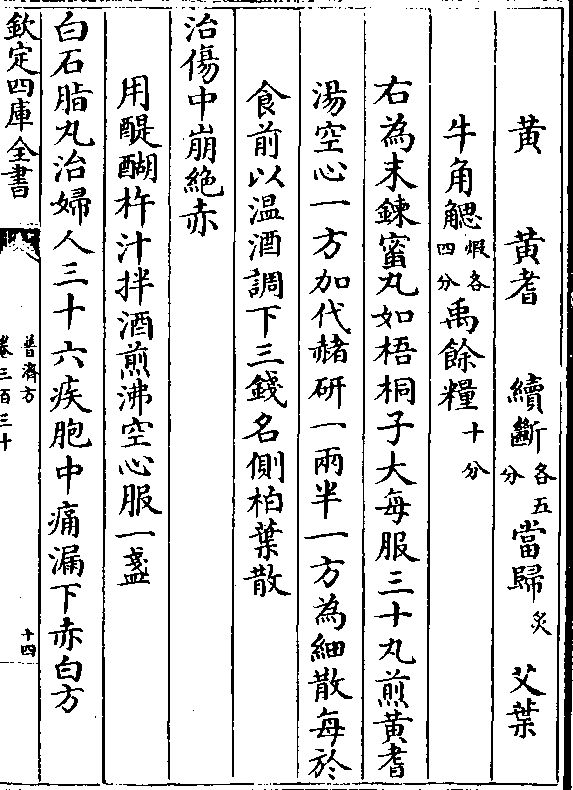 黃　黃耆　續斷各五分當歸炙　艾葉
牛角䚡煆各四分禹餘糧十分
右為末鍊蜜丸如梧桐子大每服三十丸煎黃耆
湯空心一方加代赭研一兩半一方為細散每於
食前以温酒調下三錢名側柏葉散
治傷中崩絶赤
用醍醐杵汁拌酒煎沸空心服一盞
白石脂丸治婦人三十六疾胞中痛漏下赤白方
欽定四庫全書
普濟方
卷三百三十
十四